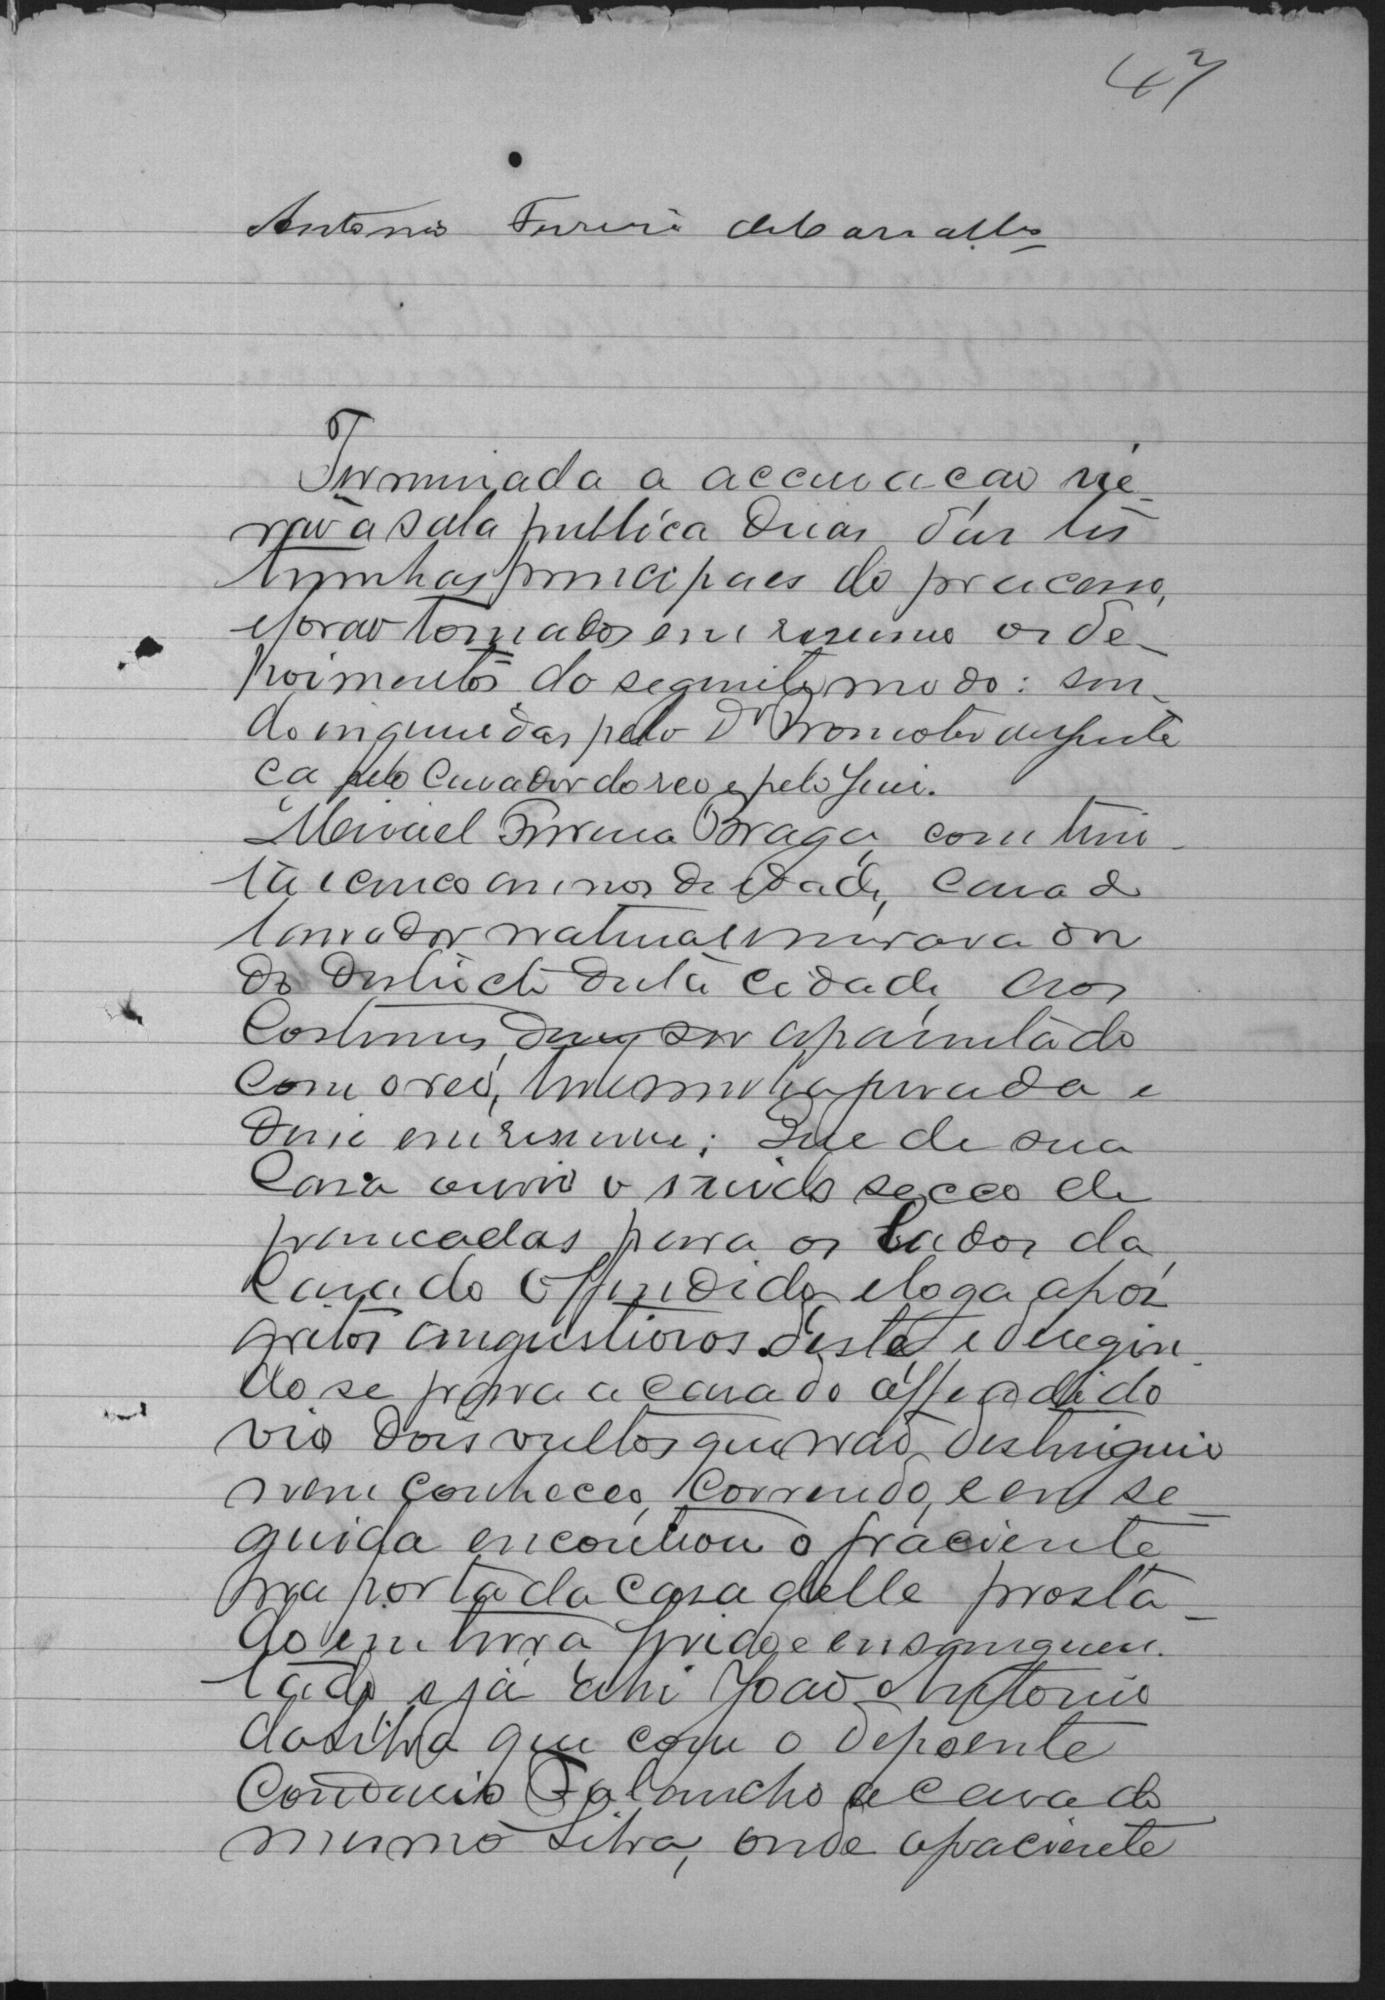 47
Antonio Ferreira de Carvalho
Terminada a accusacao vie-
rão a sala publica duas das tes
timunhas principaes do processo,
e forao tomados em resumo os de-
poimentos do seguinte modo: sen-
do inqueridas pelo Dr Promotor de justi
ca pelo Curador do reo e pelo Juis.
Manoel Ferreira Braga, com trin-
ta e cinco annos de idade, casado
lavrador natural e morava or
do districto desta cidade, aos
Costumes, disse ser aparentado
com o reo, testemunha jurada e
disse em resumo: Que de sua
Casa ouvio o ruido secco de
pancadas para os lados da
Casa do Offendido, e logo apos
gritos angustiosos deste e derigin-
do se para a casa do offendido
vio dois vultos que não destinguio
nem conheceo, correndo, e em se-
guida encontrou o paciente
na porta da casa delle prosta-
do em terra, ferido e ensanguen-
tado, e já ahi João Antonio
da Silva que com o depoente
Conduzio a casa do
mesmo Silva, onde o paciente